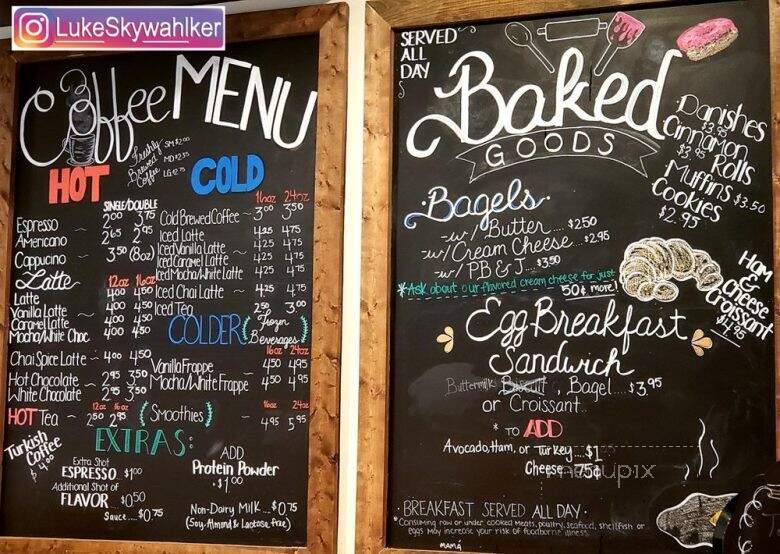 LukeSkywahlker
Coffee MENU
Freshly Brewed Coffee
SM $2.00
MD $2.35
LG $2.75
HOT
SINGLE/DOUBLE
Espresso ~ 2.00 3.75
Americano 2.65 2.95
Cappucino 3.50 (8oz)
Latte 12oz 16oz
Latte 4.00 4.50
Vanilla Latte 4.00 4.50
Caramel Latte 4.00 4.50
Mocha/White Choc 4.00 4.50
Chai Spice Latte - 4.00 4.50
Hot Chocolate ~ 2.95 3.50
White Chocolate 2.95 3.50
12oz 16oz
HOT Tea ~ 2.50 2.95
Turkish Coffee
$4.00
COLD
16oz 24oz
Cold Brewed Coffee ~ 3.00 3.50
Iced Latte 4.25 4.75
Iced Vanilla Latte ~ 4.25 4.75
Iced Caramel Latte 4.25 4.75
Iced Mocha/White Latte 4.25 4.75
Iced Chai Latte ~ 4.25 4.75
Iced Tea 2.50 3.00
COLDER (Frozen Beverages)
16oz 24oz
Vanilla Frappe 4.50 4.95
Mocha/White Frappe 4.50 4.95
16oz 24oz
(Smoothies) 4.95 5.95
EXTRAS:
Extra Shot
ESPRESSO $1.00
Additional Shot of
FLAVOR ~ $0.50
Sauce.....$0.75
ADD
Protein Powder
~ $1.00
Non-Dairy Milk...$0.75
(Soy, Almond & Lactose free)
SERVED
ALL
DAY
Baked
GOODS
Danishes
$3.95
Cinnamon Rolls
$3.95
Muffins $3.50
Cookies
$2.95
· Bagels ·
-w/ Butter.... $2.50
-w/ Cream Cheese... $2.95
-w/ PB & J.... $3.50
*Ask about our flavored cream cheese for just
50¢ more!
Ham
& Cheese
Croissant
$4.95
Egg Breakfast
Sandwich
Buttermilk Biscuit, Bagel....$3.95
or Croissant..
* TO ADD
Avocado, Ham, or Turkey....$1
Cheese...75¢
· BREAKFAST SERVED ALL DAY ·
*Consuming raw or under cooked meats, poultry, seafood, shellfish or
eggs may increase your risk of foodborne illness.
MAMÁ